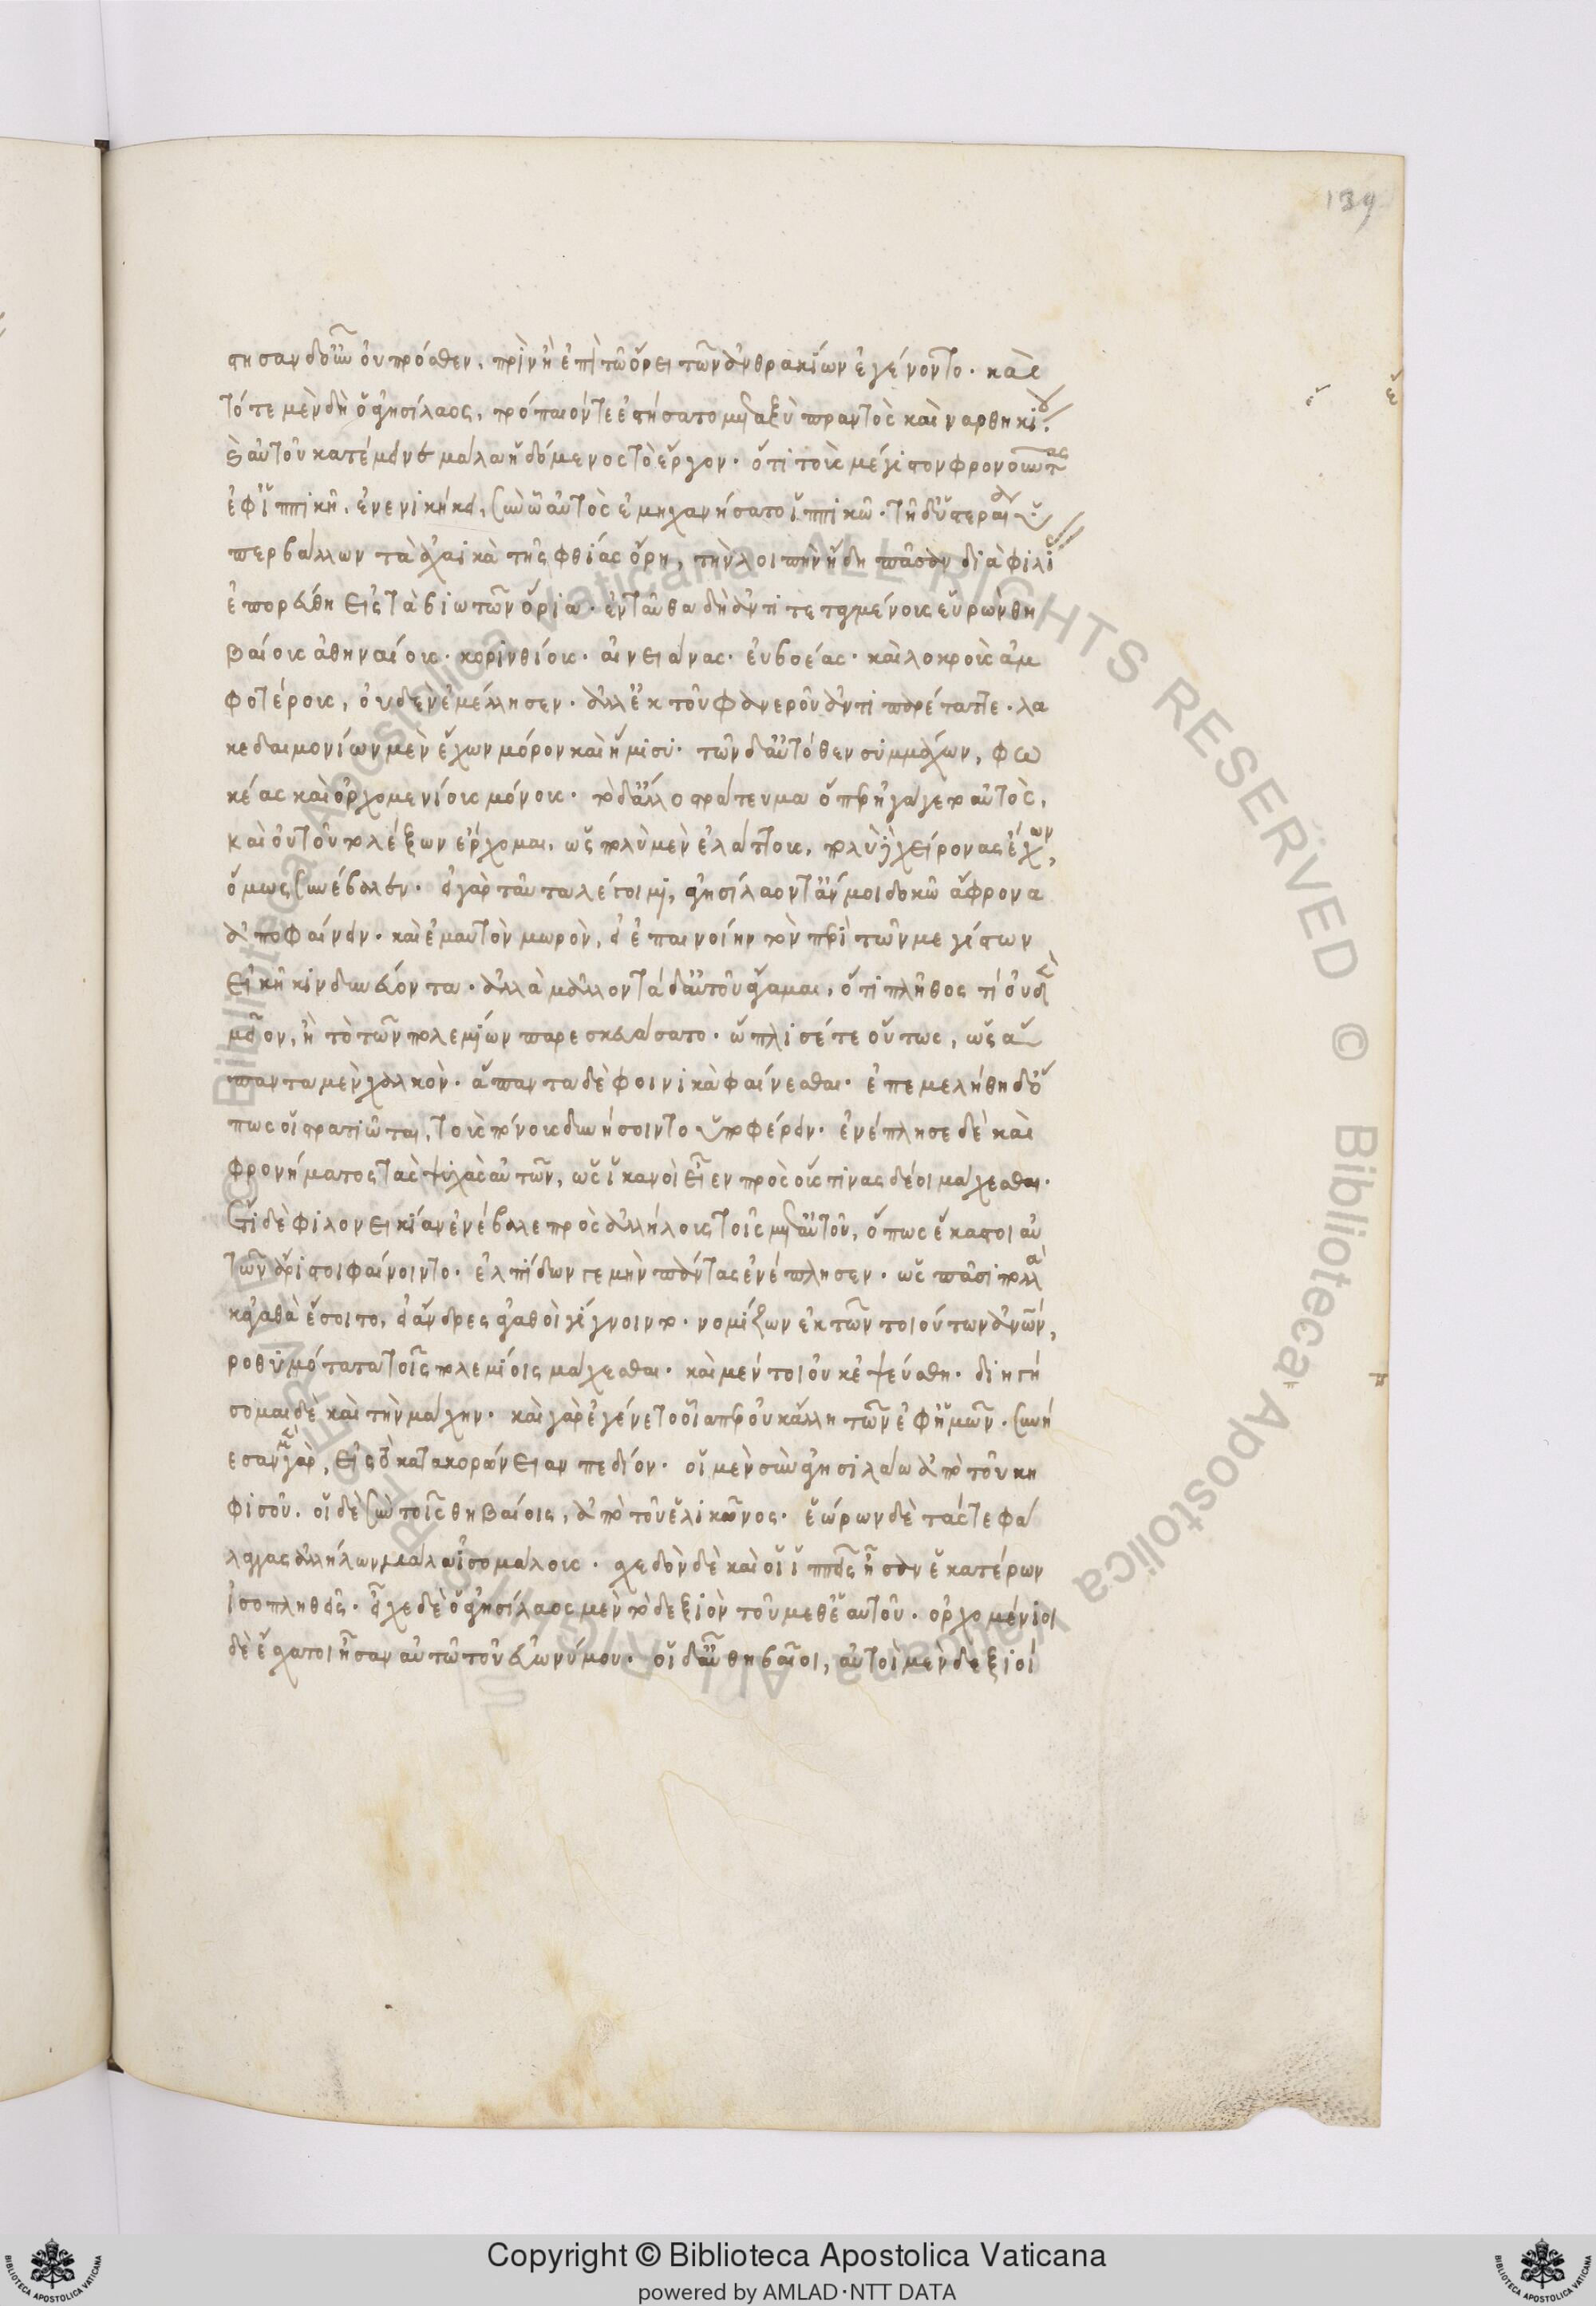 139
στησαν δ' οὖν οὐ πρόσθεν, πρὶν ἢ ἐπὶ τῶ ὄρει τῶν ἀνθρακίων ἐγένοντο. καὶ
τότε μὲν δὴ ὁ ἀγησίλαος, τρόπαιόν τε ἐστήσατο μεταξὺ πραντὸς καὶ ναρθηκίου.
καὶ αὐτοῦ κατέμεινε μάλα ἡδόμενος τὸ ἔργον. ὅτι τοὺς μέγιστον φρονοῦντας
ἐφ' ἱππικῆ, ἐνενικήκει, σὺν ᾧ αὐτὸς ἐμηχανήσατο ἱππικῶ. τῆ δ' ὑστεραία ὑ
περβάλλων τὰ ἀχαικὰ τῆς φθίας ὄρη, τὴν λοιπὴν ἤδη πᾶσαν διὰ φιλίας
ἐπορεύθη εἰς τὰ βιωτῶν ὅρια. ἐνταῦθα δὴ ἀντιτεταγμένους εὑρὼν θη
βαίους ἀθηναίους. κορινθίους. αἰνειᾶνας. εὐβοέας. καὶ λοκροὺς ἀμ
φοτέρους, οὐδὲν ἐμέλλησεν. ἀλλ' ἐκ τοῦ φανεροῦ ἀντιπαρέταττε. λα
κεδαιμονίων μὲν ἔχων μόραν καὶ ἥμισυ. τῶν δ' αὐτόθεν συμμάχων, φω
κέας καὶ ὀρχομενίους μόνους. τὸ δ' ἄλλο στράτευμα ὅπερ ἠγάγετο αὐτὸς,
καὶ οὐ τοῦτο λέξων ἔρχομαι, ὡς πολὺ μὲν ἐλάττους, πολὺ δὲ χείρονας ἔχων,
ὅμως συνέβαλεν. εἰ γὰρ ταῦτα λέγοιμι, ἀγησίλαόν τ' ἄν μοι δοκῶ ἄφρονα
ἀποφαίνειν. καὶ ἐμαυτὸν μωρὸν, εἰ ἐπαινοίην τὸν περὶ τῶν μεγίστων
εἰκῆ κινδυνεύοντα. ἀλλὰ μᾶλλον τάδ' αὐτοῦ ἄγαμαι, ὅτι πλῆθός τι οὐδὲν
μεῖον, ἢ τὸ τῶν πολεμίων παρεσκευάσατο. ὥπλισέ τε οὕτως, ὡς ἅ
παντα μὲν χαλκὸν. ἅπαντα δὲ φοινικὰ φαίνεσθαι. ἐπεμελήθη δ' ὅ
πως οἱ στρατιῶται, τοὺς πόνους δυνήσοιντο ὑποφέρειν. ἐνέπλησε δὲ καὶ
φρονήματος τὰς ψυχὰς αὐτῶν, ὡς ἱκανοὶ εἶεν πρὸς οὕς τινας δέοι μάχεσθαι.
ἔτι δὲ φιλονεικίαν ἐνέβαλε πρὸς ἀλλήλους τοῖς μετ' αὐτοῦ, ὅπως ἕκαστοι αὐ
τῶν ἄριστοι φαίνοιντο. ἐλπίδων γε μὴν πάντας ἐνέπλησεν. ὡς πᾶσι πολλὰ
κἀγαθὰ ἔσοιτο, εἰ ἄνδρες ἀγαθοὶ γίγνοιντο. νομίζων ἐκ τῶν τοιούτων ἀνῶν,
ροθυμότατα τοῖς πολεμίοις μάχεσθαι. καὶ μέντοι οὐκ ἐψεύσθη. διηγή
σομαι δὲ καὶ τὴν μάχην. καὶ γὰρ ἐγένετο οἵα περ οὐκ ἄλλη τῶν ἐφ' ἡμῶν. συνή
εσαν μὲν γὰρ, εἰς τὸ κατὰ κορώνειαν πεδίον. οἱ μὲν σὺν ἀγησιλάω ἀπὸ τοῦ κη
φισοῦ. οἱ δὲ σὺν τοῖς θηβαίοις, ἀπὸ τοῦ ἑλικῶνος. ἑώρων δὲ τάς τε φά
λαγγας ἀλλήλων μάλα ἰσομάλους. σχεδὸν δὲ καὶ οἱ ἱππεῖς ἦσαν ἑκατέρων
ἰσοπληθεῖς. εἶχε δὲ ὁ ἀγησίλαος μὲν τὸ δεξιὸν τοῦ μεθ' ἑαυτοῦ. ὀρχομένιοι
δὲ ἔσχατοι ἦσαν αὐτῶ τοῦ εὐωνύμου. οἱ δ' αὖ θηβαῖοι, αὐτοὶ μὲν δεξιοὶ
© Biblioteca Apostolica Vaticana ALL RIGHTS RESERVED
Copyright © Biblioteca Apostolica Vaticana
powered by AMLAD·NTT DATA